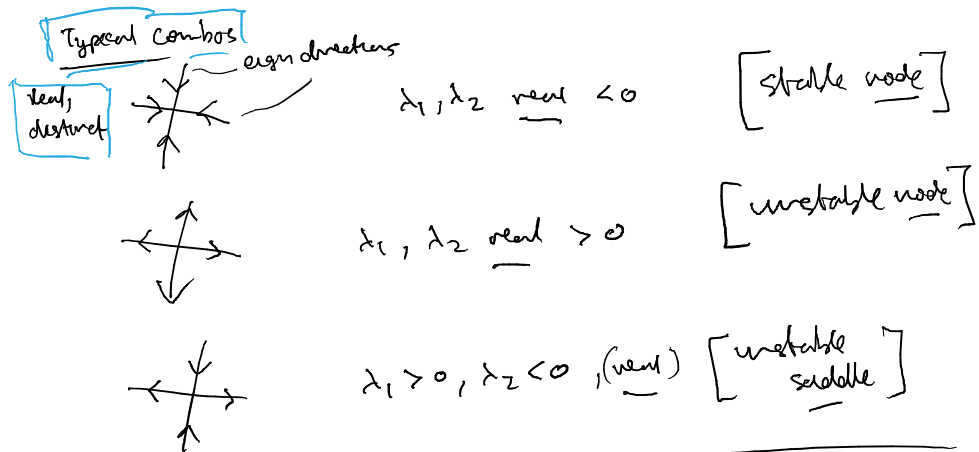 Typical Combos
eigen directions
real,
distinct
λ₁, λ₂ real < 0
[stable node]
λ₁, λ₂ real > 0
[unstable node]
λ₁ > 0, λ₂ < 0, (real)
[unstable
saddle]